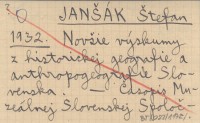 JANŠÁK Štefan
1932. Novšie výskumy
z historickej geografie a
anthropogeografie Slo-
venska. — Časopis Mu-
zeálnej Slovenskej Spoloč-